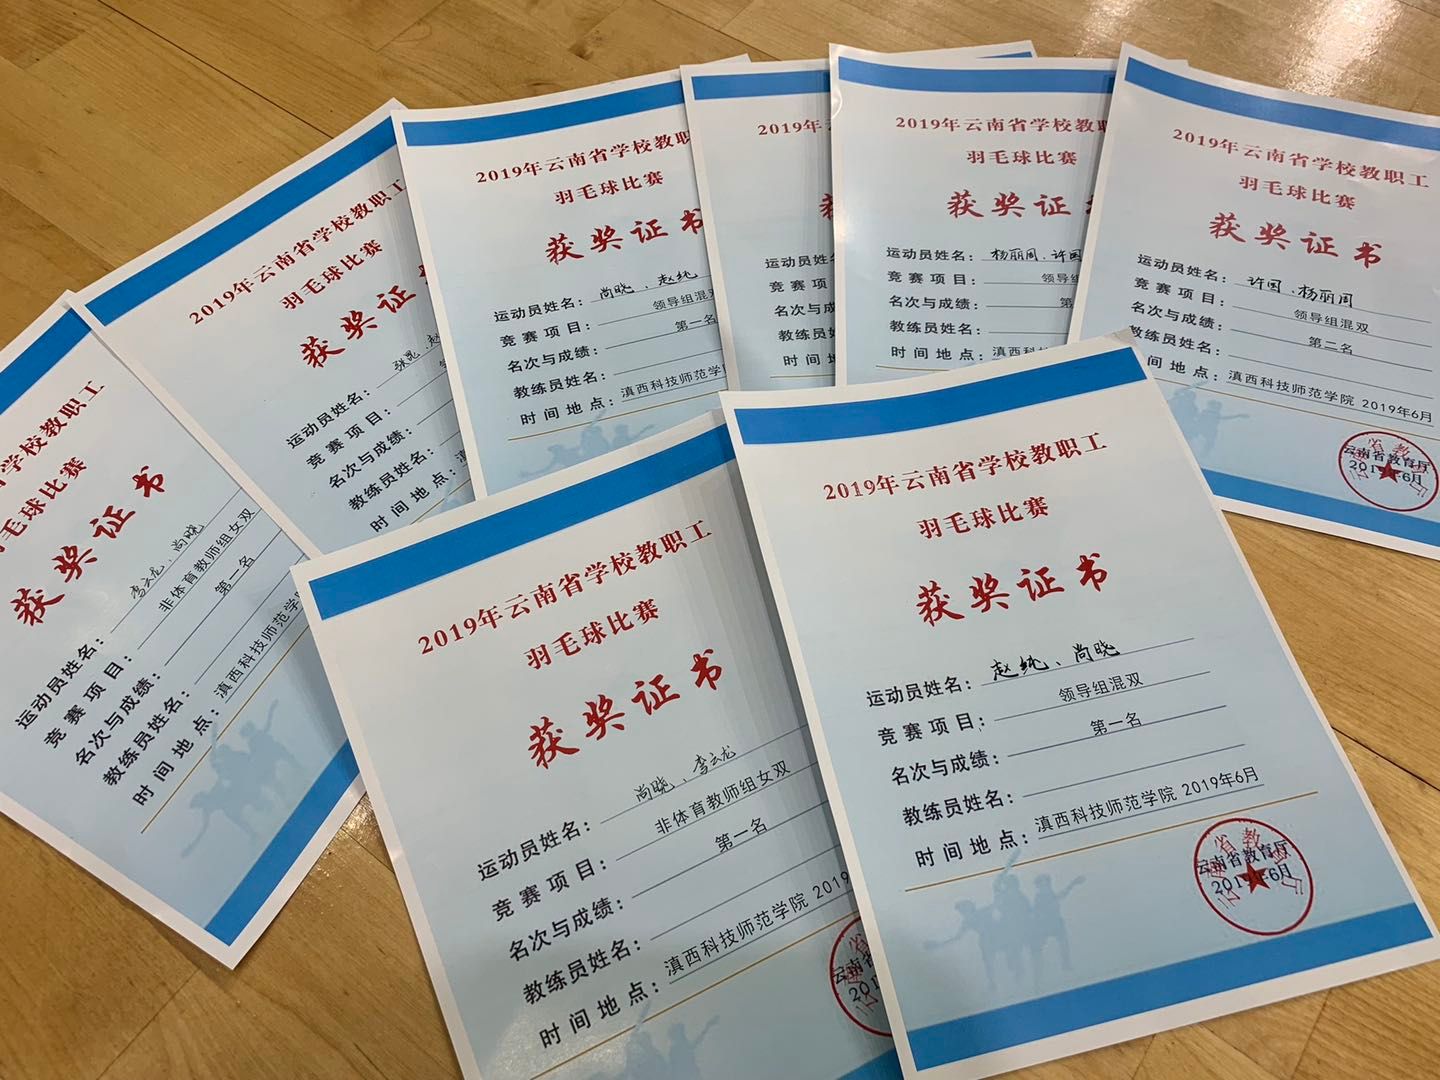 学校教职工
羽毛球比赛
获奖证书
运动员姓名：李云龙、尚晓
竞赛项目：非体育教师组女双
名次与成绩：第一名
教练员姓名：
时间地点：滇西科技师范学院
2019年云南省学校教职工
羽毛球比赛
获奖证
运动员姓名：张昆、赵
竞赛项目：
名次与成绩：
教练员姓名：
时间地点：滇
2019年云南省学校教职
羽毛球比赛
获奖证书
运动员姓名：尚晓、赵纯
竞赛项目：领导组混双
名次与成绩：第一名
教练员姓名：
时间地点：滇西科技师范学
2019年
获
运动员姓名：
竞赛项目：
名次与成
教练员姓
时间地
2019年云南省学校教
羽毛球比赛
获奖证
运动员姓名：杨丽周、许国
竞赛项目：领导组
名次与成绩：第
教练员姓名：
时间地点：滇西科技师
2019年云南省学校教职工
羽毛球比赛
获奖证书
运动员姓名：许国、杨丽周
竞赛项目：领导组混双
名次与成绩：第二名
教练员姓名：
时间地点：滇西科技师范学院 2019年6月
云南省教育厅
2019年6月
2019年云南省学校教职工
羽毛球比赛
获奖证书
运动员姓名：尚晓、李云龙
竞赛项目：非体育教师组女双
名次与成绩：第一名
教练员姓名：
时间地点：滇西科技师范学院 2019
云南省
201
2019年云南省学校教职工
羽毛球比赛
获奖证书
运动员姓名：赵纯、尚晓
竞赛项目：领导组混双
名次与成绩：第一名
教练员姓名：
时间地点：滇西科技师范学院 2019年6月
云南省教育厅
2019年6月